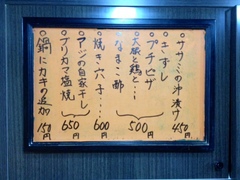 ササミの沖漬け 450円
土ずし
プチピザ
大根と鶏と…
なまこ酢 500円
焼き穴子… 600円
アジの自家干し
ブリカマ塩焼 650円
鍋にカキの追加 150円